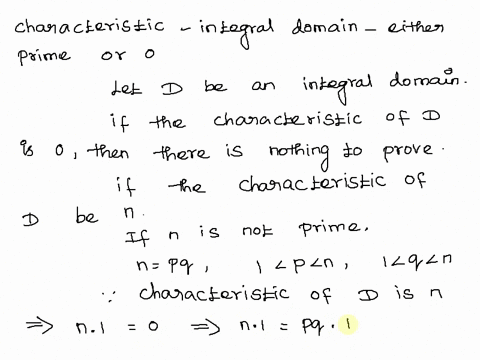 characteristic - integral domain - either
prime or 0
Let D be an integral domain.
if the characteristic of D
is 0, then there is nothing to prove.
if the characteristic of
D be n.
If n is not prime.
n = pq, 1 < p < n, 1 < q < n
∵ characteristic of D is n
⇒ n.1 = 0 ⇒ n.1 = pq.1